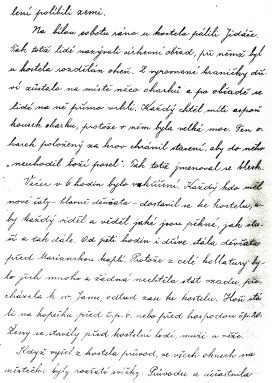 lení políbili zemi.
Na bílou sobotu ráno u kostela pálili Jidáše.
Tak totiž lidé nazývali církevní obřad, při němž byl
u kostela rozdělán oheň. Z vyrovnané hraničky dří
ví zůstalo na místě něco oharků a po obřadě se
lidé na ně přímo vrhli. Každý chtěl míti aspoň
kousek oharku, protože v něm byla velká moc. Ten o-
harek položený za krov chránil stavení, aby do něho
„neuhodil boží posel". Tak totiž jmenovali se blesk.
Večer v 6 hodin bylo vzkříšení. Každý kdo měl
nové šaty - hlavně děvčata - dostavil se ke kostelu, a-
by každý viděl a věděl jaké jsou pěkné, jak stu-
ší a tak dále. Od pěti hodin i dříve stála děvčata
před Marianskou kaplí. Protože z celé kollatury by-
lo jich mnoho a žádná nechtěla stát vzadu, při-
cházela k sv. Janu, odtud zau ke kostelu. Hoši stá-
li na kopečku před č.p. 6. nebo před hospodou čp.
Ženy se stavěly před kostelní lodí, muži u věže.
Když vyšel z kostela průvod, ve všech oknech na
městečku byly rozžaté svíčky. Průvodu se účastnila